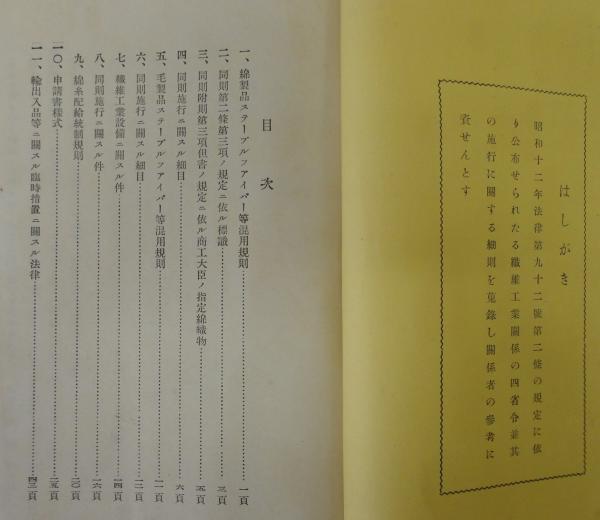 はしがき
昭和十二年法律第九十二號第二條の規定に依
り公布せられたる纖維工業關係の四省令並其
の施行に關する細則を蒐錄し關係者の參考に
資せんとす
目次
一、綿製品ステープルフアイバー等混用規則……一頁
二、同則第二條第三項ノ規定ニ依ル標識……三頁
三、同則附則第三項但書ノ規定ニ依ル商工大臣ノ指定綿織物……五頁
四、同則施行ニ關スル細目……六頁
五、毛製品ステープルフアイバー等混用規則……一一頁
六、同則施行ニ關スル細目……一二頁
七、纖維工業設備ニ關スル件……一四頁
八、同則施行ニ關スル件……一六頁
九、綿糸配給統制規則……二〇頁
一〇、申請書樣式……二五頁
一一、輸出入品等ニ關スル臨時措置ニ關スル法律……四三頁